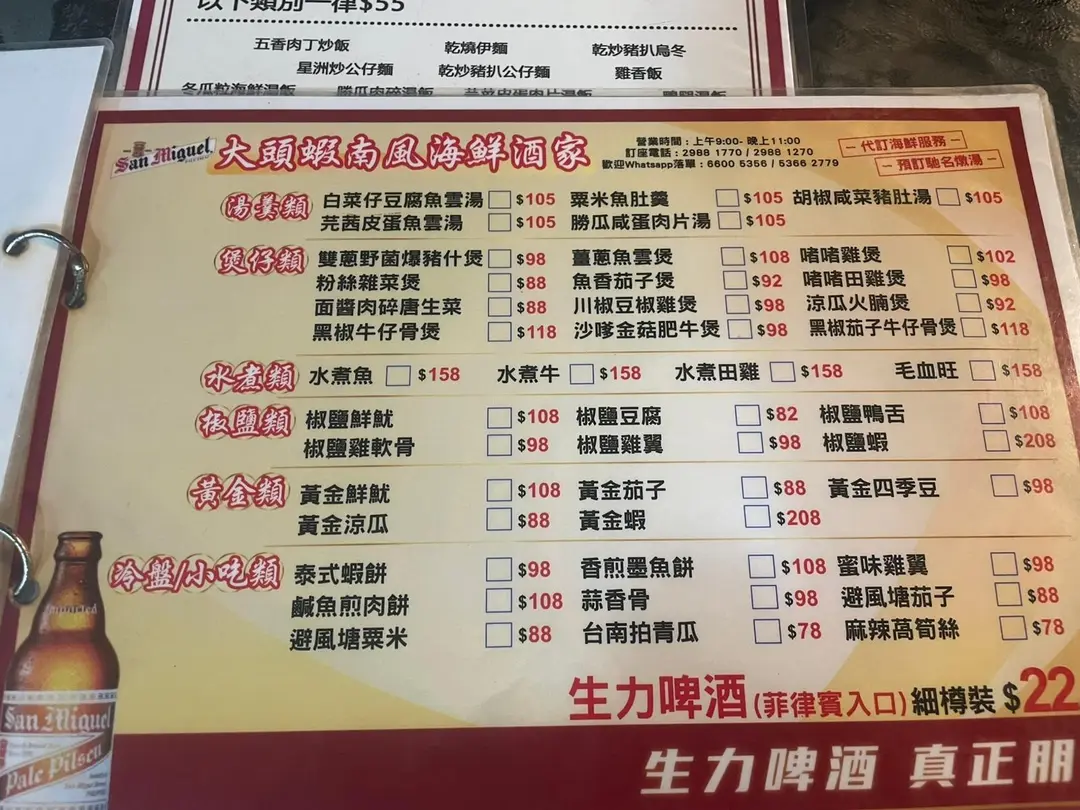 以下類別一律$55
五香肉丁炒飯 乾燒伊麵 乾炒豬扒烏冬
星洲炒公仔麵 乾炒豬扒公仔麵 雞香飯
冬瓜粒海鮮湯飯 勝瓜肉碎湯飯 芫茜皮蛋肉片湯飯
San Miguel 大頭蝦南風海鮮酒家
營業時間：上午9:00- 晚上11:00
訂座電話：2988 1770 / 2988 1270
歡迎Whatsapp落單：6600 5356 / 5366 2779
代訂海鮮服務
預訂馳名燉湯
湯羹類 白菜仔豆腐魚雲湯 $105 粟米魚肚羹 $105 胡椒咸菜豬肚湯 $105
芫茜皮蛋魚雲湯 $105 勝瓜咸蛋肉片湯 $105
煲仔類 雙蔥野菌爆豬什煲 $98 薑蔥魚雲煲 $108 啫啫雞煲 $102
粉絲雜菜煲 $88 魚香茄子煲 $92 啫啫田雞煲 $98
面醬肉碎唐生菜 $88 川椒豆椒雞煲 $98 涼瓜火腩煲 $92
黑椒牛仔骨煲 $118 沙嗲金菇肥牛煲 $98 黑椒茄子牛仔骨煲 $118
水煮類 水煮魚 $158 水煮牛 $158 水煮田雞 $158 毛血旺 $158
椒鹽類 椒鹽鮮魷 $108 椒鹽豆腐 $82 椒鹽鴨舌 $108
椒鹽雞軟骨 $98 椒鹽雞翼 $98 椒鹽蝦 $208
黃金類 黃金鮮魷 $108 黃金茄子 $88 黃金四季豆 $98
黃金涼瓜 $88 黃金蝦 $208
冷盤/小吃類 泰式蝦餅 $98 香煎墨魚餅 $108 蜜味雞翼 $98
鹹魚煎肉餅 $108 蒜香骨 $98 避風塘茄子 $88
避風塘粟米 $88 台南拍青瓜 $78 麻辣萵筍絲 $78
生力啤酒(菲律賓入口)細樽裝 $22
生力啤酒 真正朋
Imported
San Miguel
Pale Pilsen